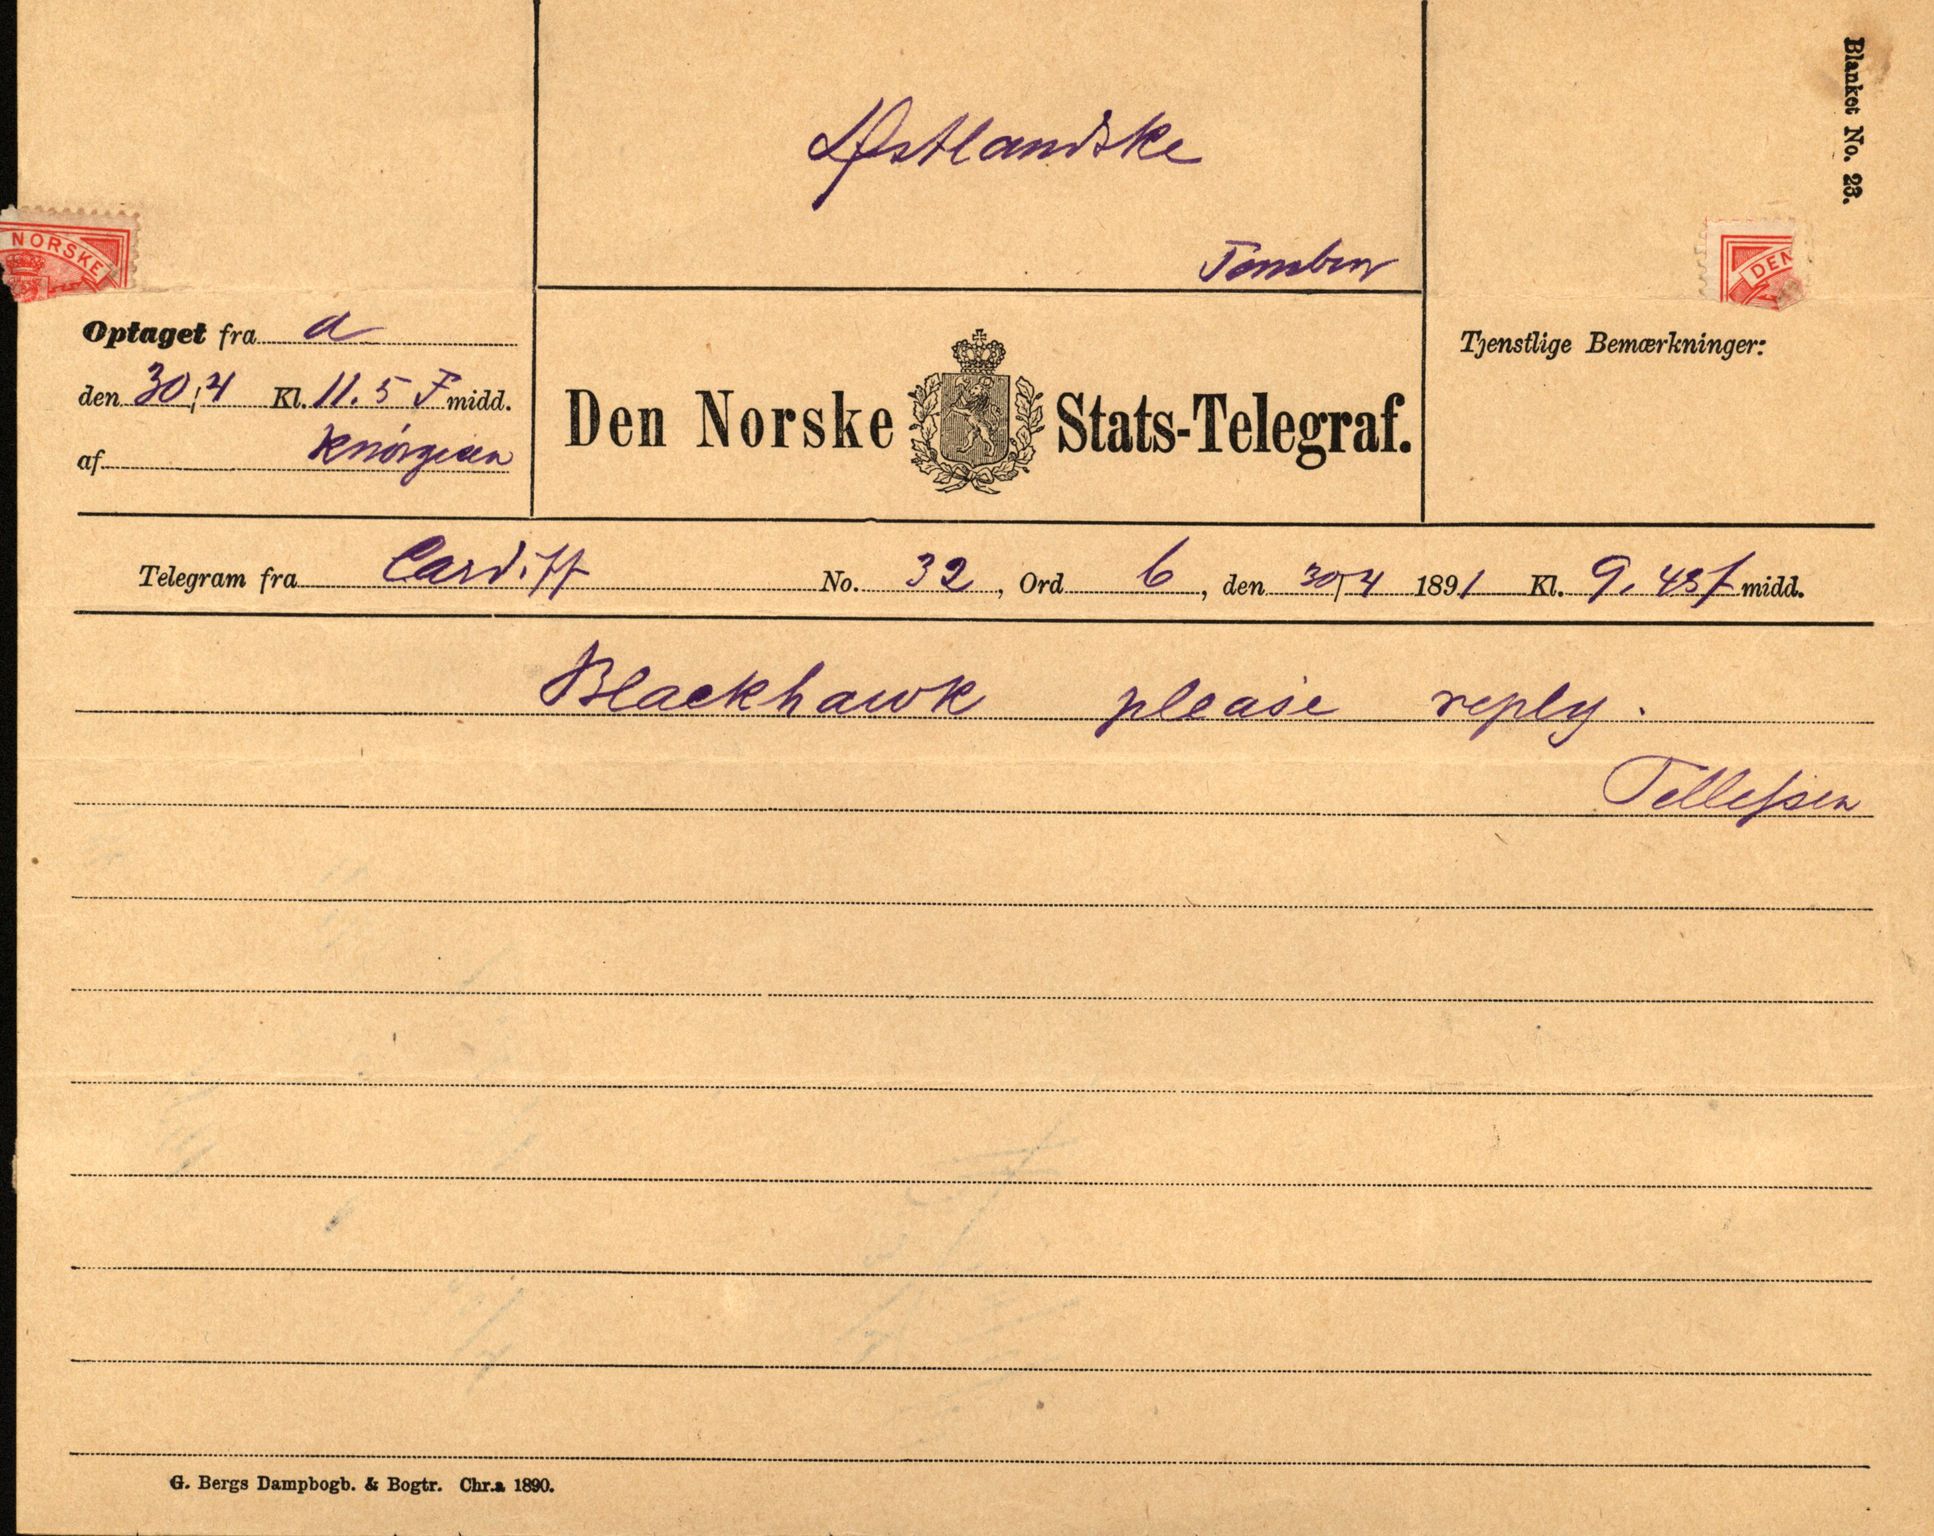 Blanket No. 23.
Østlandske
NORSKE
DEN
Optaget fra a
den 30/4 Kl. 11.5 F midd.
af
Den Norske Stats-Telegraf.
Tjenstlige Bemærkninger:
Telegram fra Cardiff No. 32, Ord 6, den 30/4 1891 Kl. 9,48 f midd.
Blackhawk please reply.
Tellefsen
G. Bergs Dampbogb. & Bogtr. Chr.a 1890.